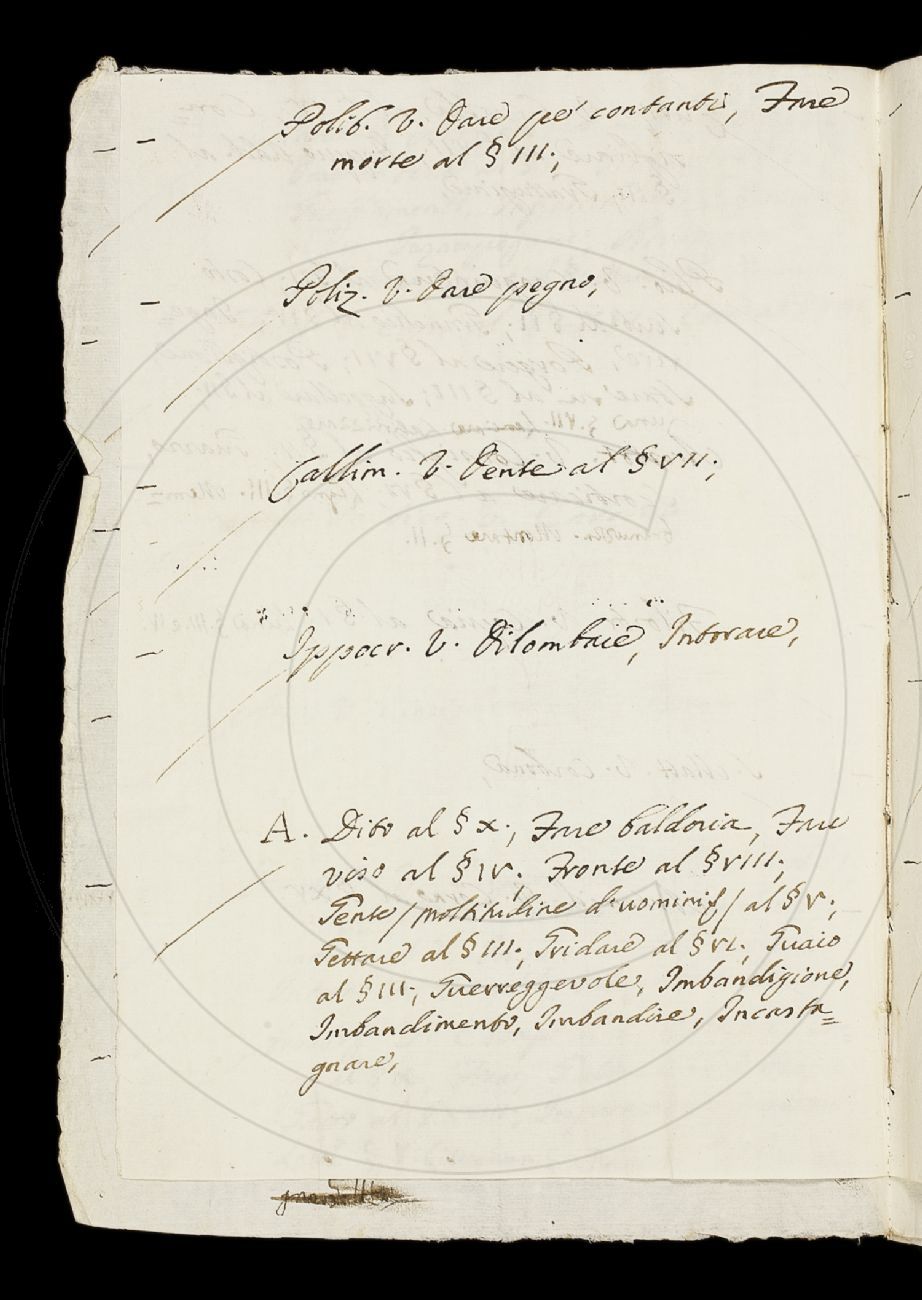 Polib. V. Dare pe' contanti, Fare
morte al § III;
Poliz. V. Dare pegno,
Callim. V. Dente al § VII;
Ippocr. V. Dilombare, Intorare,
A. Dito al § X; Fare baldoria, Fare
viso al § IV; Fronte al § VIII;
Gente / moltitudine d'uomini / al § V;
Gettare al § III; Gridare al § VI; Guaio
al § III; Guerreggevole, Imbandigione,
Imbandimento, Imbandire, Incasta=
gnare,